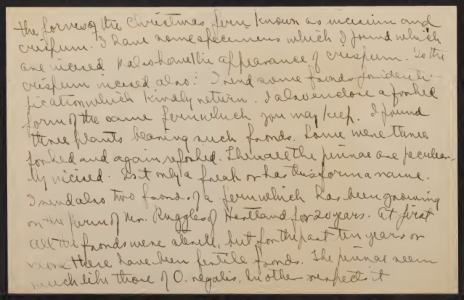 the forms of the Christmas fern known as incisum and
crispum. I have some specimens which I found which
are incised & also have the appearance of crispum. Is the
crispum incised also? I send some fronds for identi-
fication which kindly return. I also enclose a forked
form of the same fern which you may keep. I found
three plants bearing such fronds. Some were three
forked and again reforked. The pinnae are peculiar-
ly incised. Is it only a freak or has this form a name.
I send also two fronds of a fern which has been growing
on the farm of Mrs. Ruggles of Hartland for 20 years. At first
all the fronds were sterile, but for the past ten years or
more there have been fertile fronds. The pinnae seem
much like those of O. regalis, in other respects it